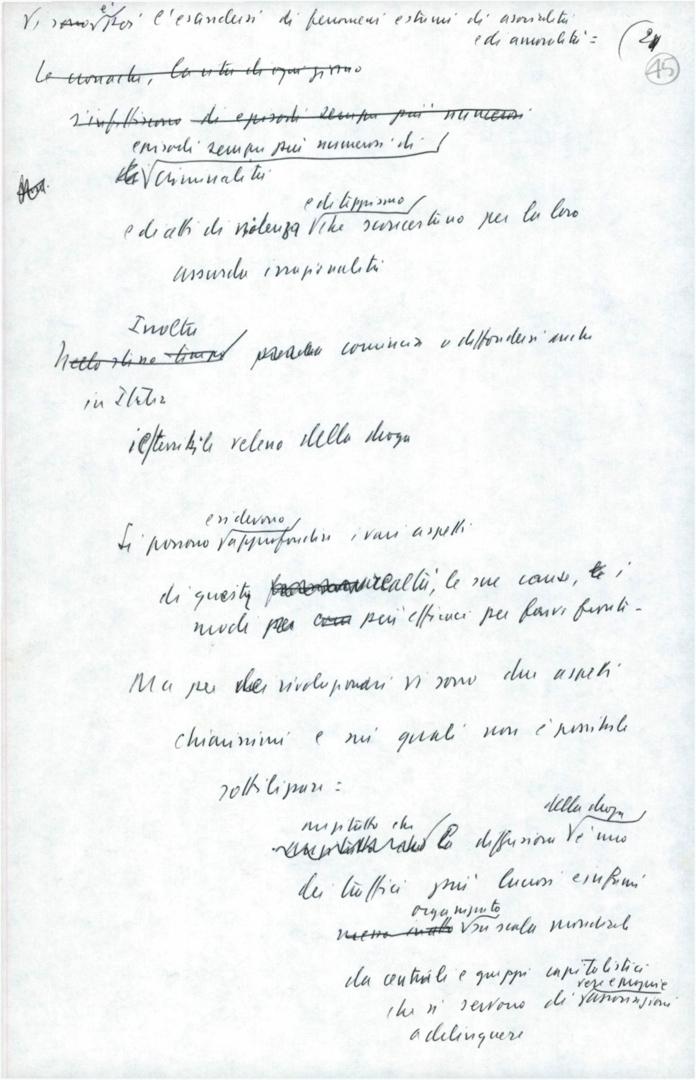 Vi sono è poi l'estendersi di fenomeni estremi di asocialità
e di amoralità =
(21
45
Le cronache, la vita di ogni giorno
s'infittiscono di episodi sempre più numerosi
episodi sempre più numerosi di
di criminalità
e di teppismo
e di atti di violenza che sconcertano per la loro
assurda irrazionalità
Inoltre
Nello stesso tempo comincia a diffondersi anche
in Italia
il terribile veleno della droga
e si devono
Si possono approfondire i vari aspetti
di questa realtà, le sue cause, le i
modi per più efficaci per farvi fronte -
Ma per noi rivoluzionari vi sono due aspetti
chiarissimi e sui quali non è possibile
sottilizzare =
innanzitutto che della droga
la diffusione è uno
dei traffici più lucrosi e infami
organizzato
messo in atto su scala mondiale
da centrali e gruppi capitalistici
vere e proprie
che si servono di associazioni
a delinquere